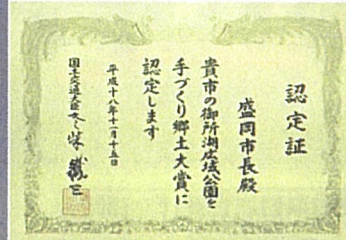 認定証
盛岡市長殿
貴市の御所湖広域公園を
手づくり郷土大賞に
認定します
平成十八年十二月十五日
国土交通大臣 冬柴鐵三